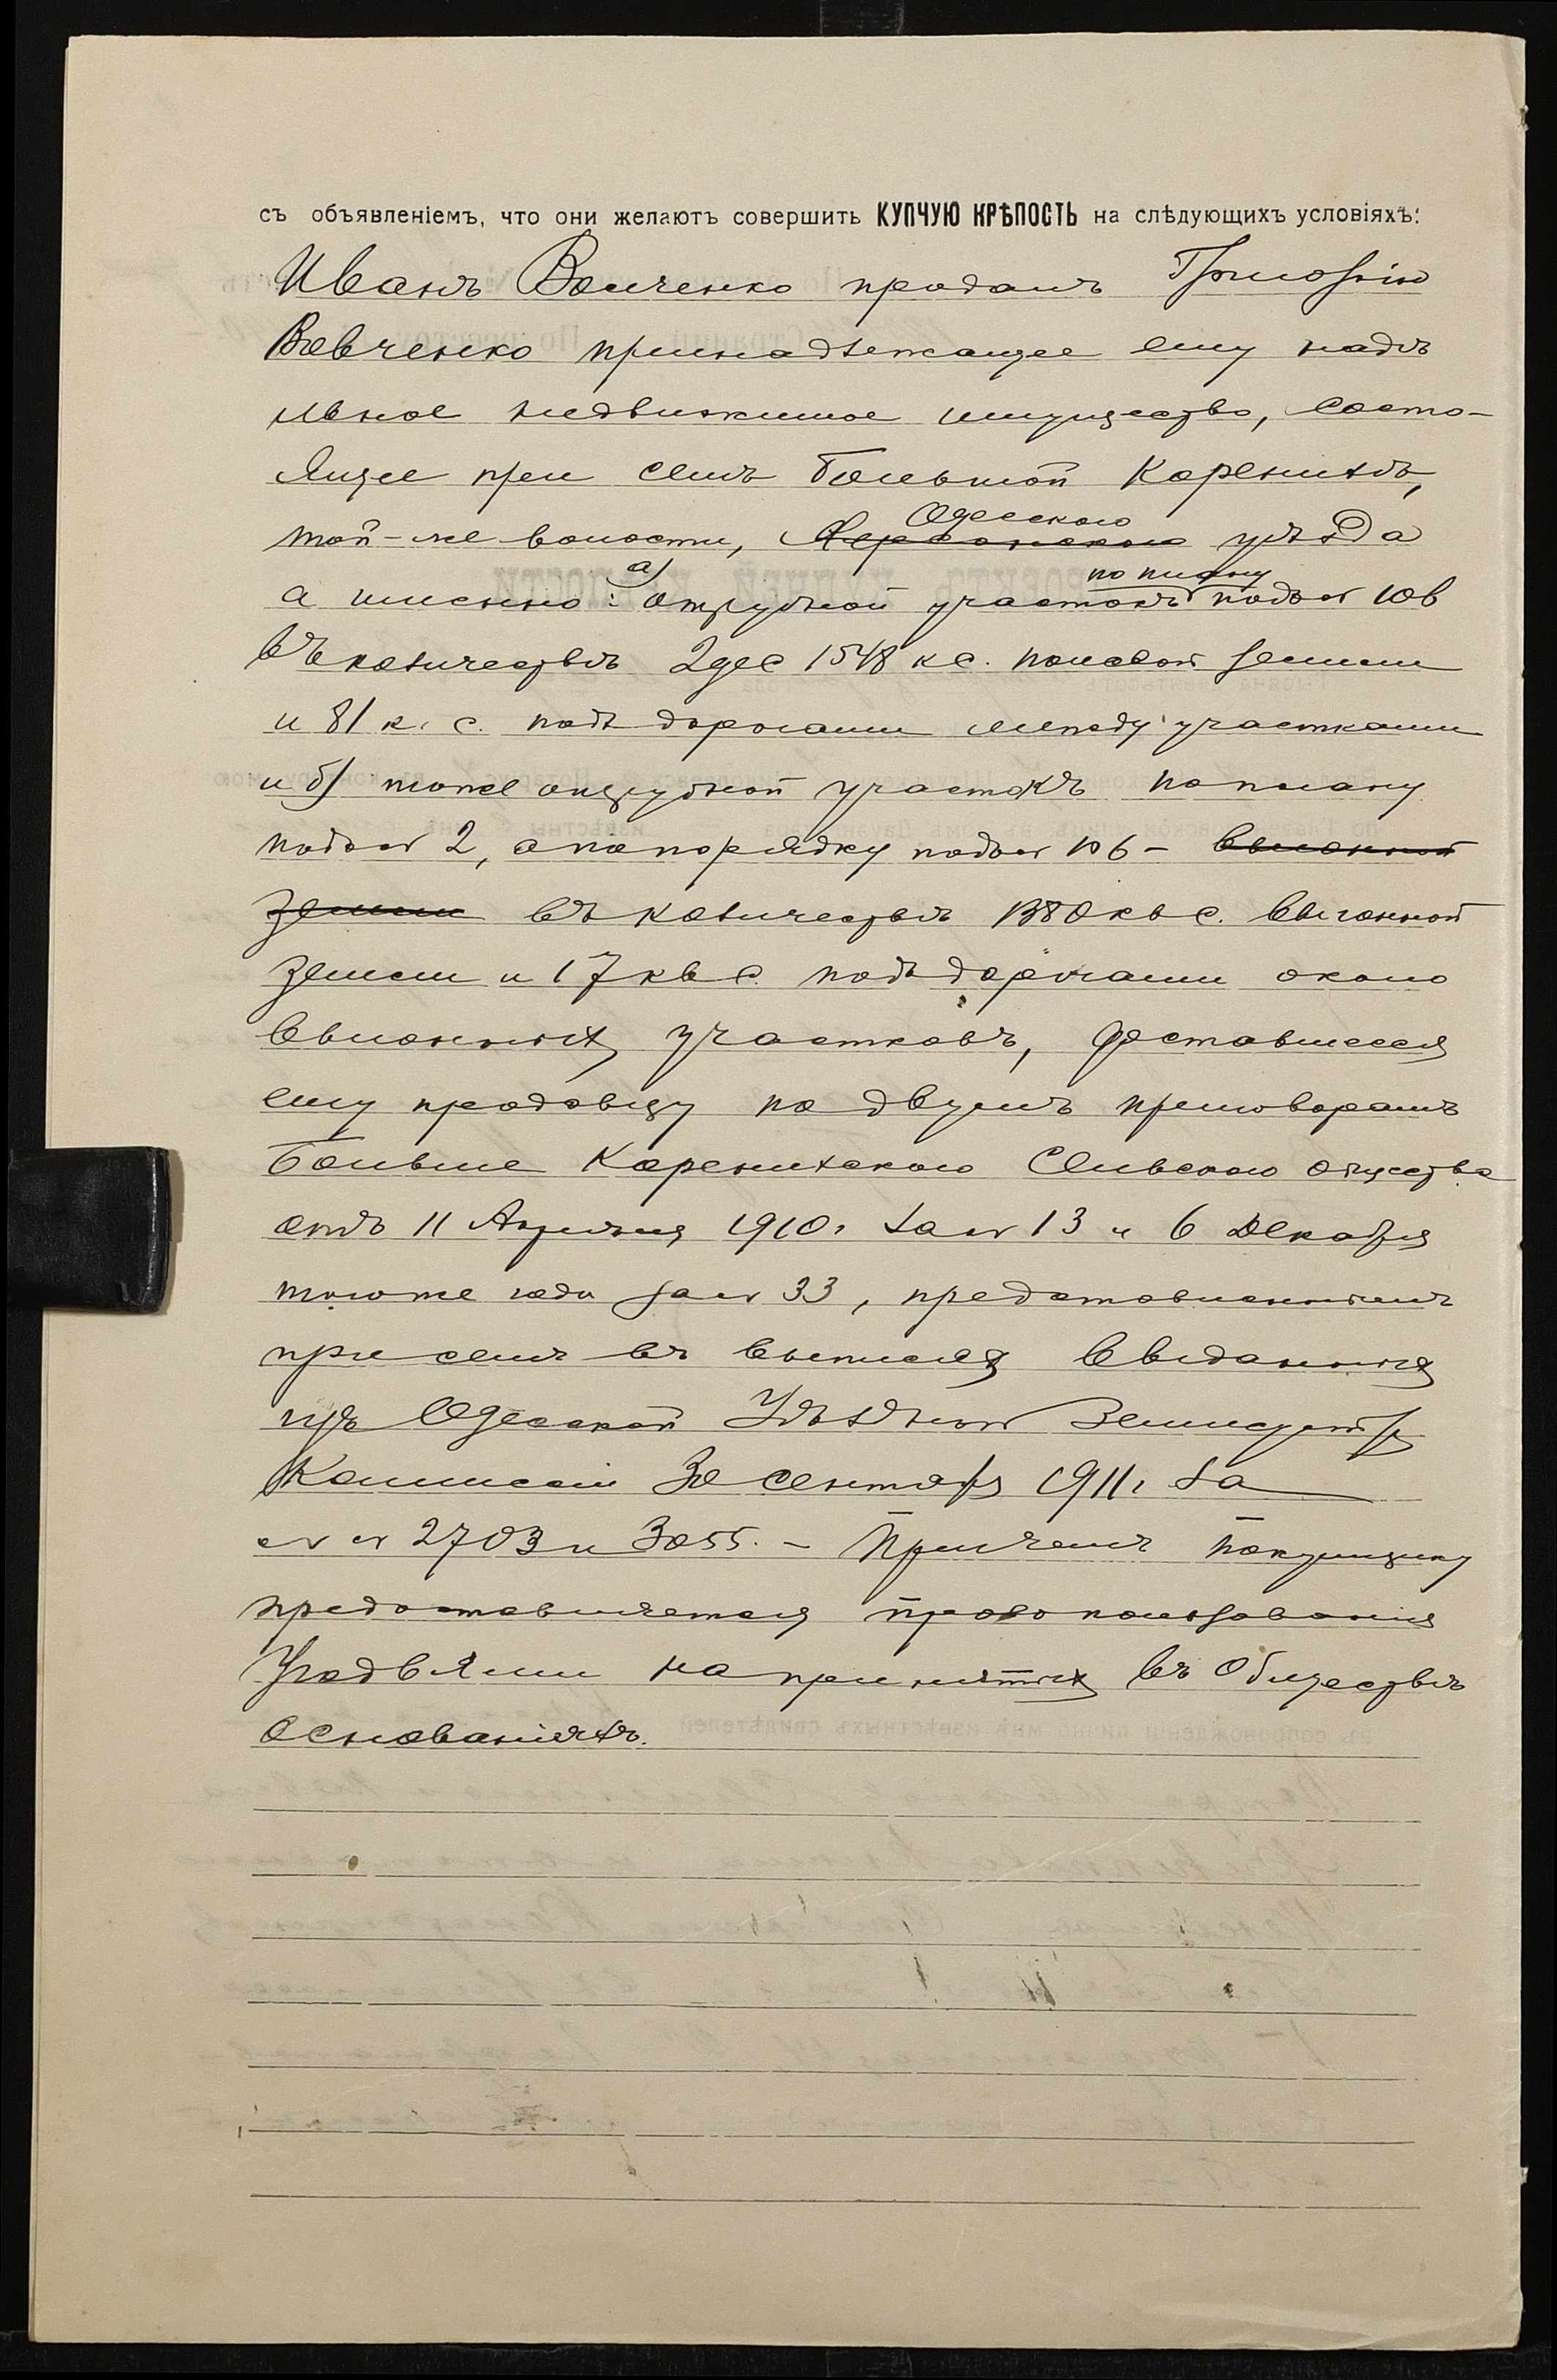 съ объявленіемъ, что они желаютъ совершить КУПЧУЮ КРѢПОСТЬ на слѣдующихъ условіяхъ:
Иванъ Волченко продалъ Григорію
Вовченко принадлежащее ему надѣ
льное недвижимое имущество, состо-
ящее при селѣ Большой Коренихѣ,
той-же волости, Херсонскаго Одесскаго уѣзда
а именно: а) отрубной участокъ по плану подъ № 106
въ количествѣ 2 дес 1548 к с. полевой земли
и 81 к. с. подъ дорогами между участками
и б) тоже отрубной участокъ по плану
подъ № 2, а по порядку подъ № 106 - выгонной
земли въ количествѣ 1380 кв с. выгонной
земли и 17 кв с. подъ дорогами около
выгонныхъ участковъ, доставшееся
ему продавцу по двумъ приговорамъ
Больше Коренихскаго Сельскаго Общества
отъ 11 Апрѣля 1910 г за № 13 и 6 Декабря
того же года за № 33, представленнымъ
при семъ въ выписяхъ выданныхъ
изъ Одесской Уѣздной Землеустр
Коммисіи 30 сентября 1911 г за
№ № 2703 и 3055. - Причемъ покупщику
предоставляется право пользованія
угодьями на принятыхъ въ Обществѣ
основаніяхъ.